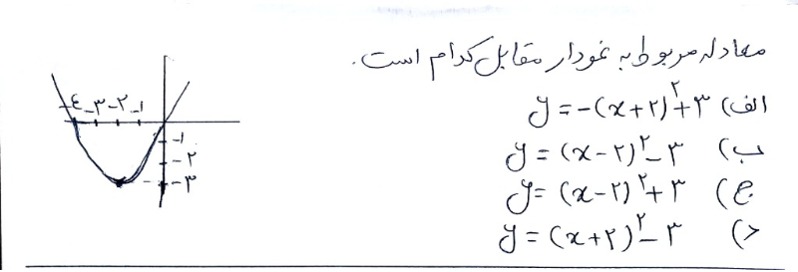 معادله مربوط به نمودار مقابل کدام است.
الف) y = -(x+۲)^۲+۳
ب) y = (x-۲)^۲-۳
ج) y = (x-۲)^۲+۳
د) y = (x+۲)^۲-۳
-۴ -۳ -۲ -۱
-۱
-۲
-۳